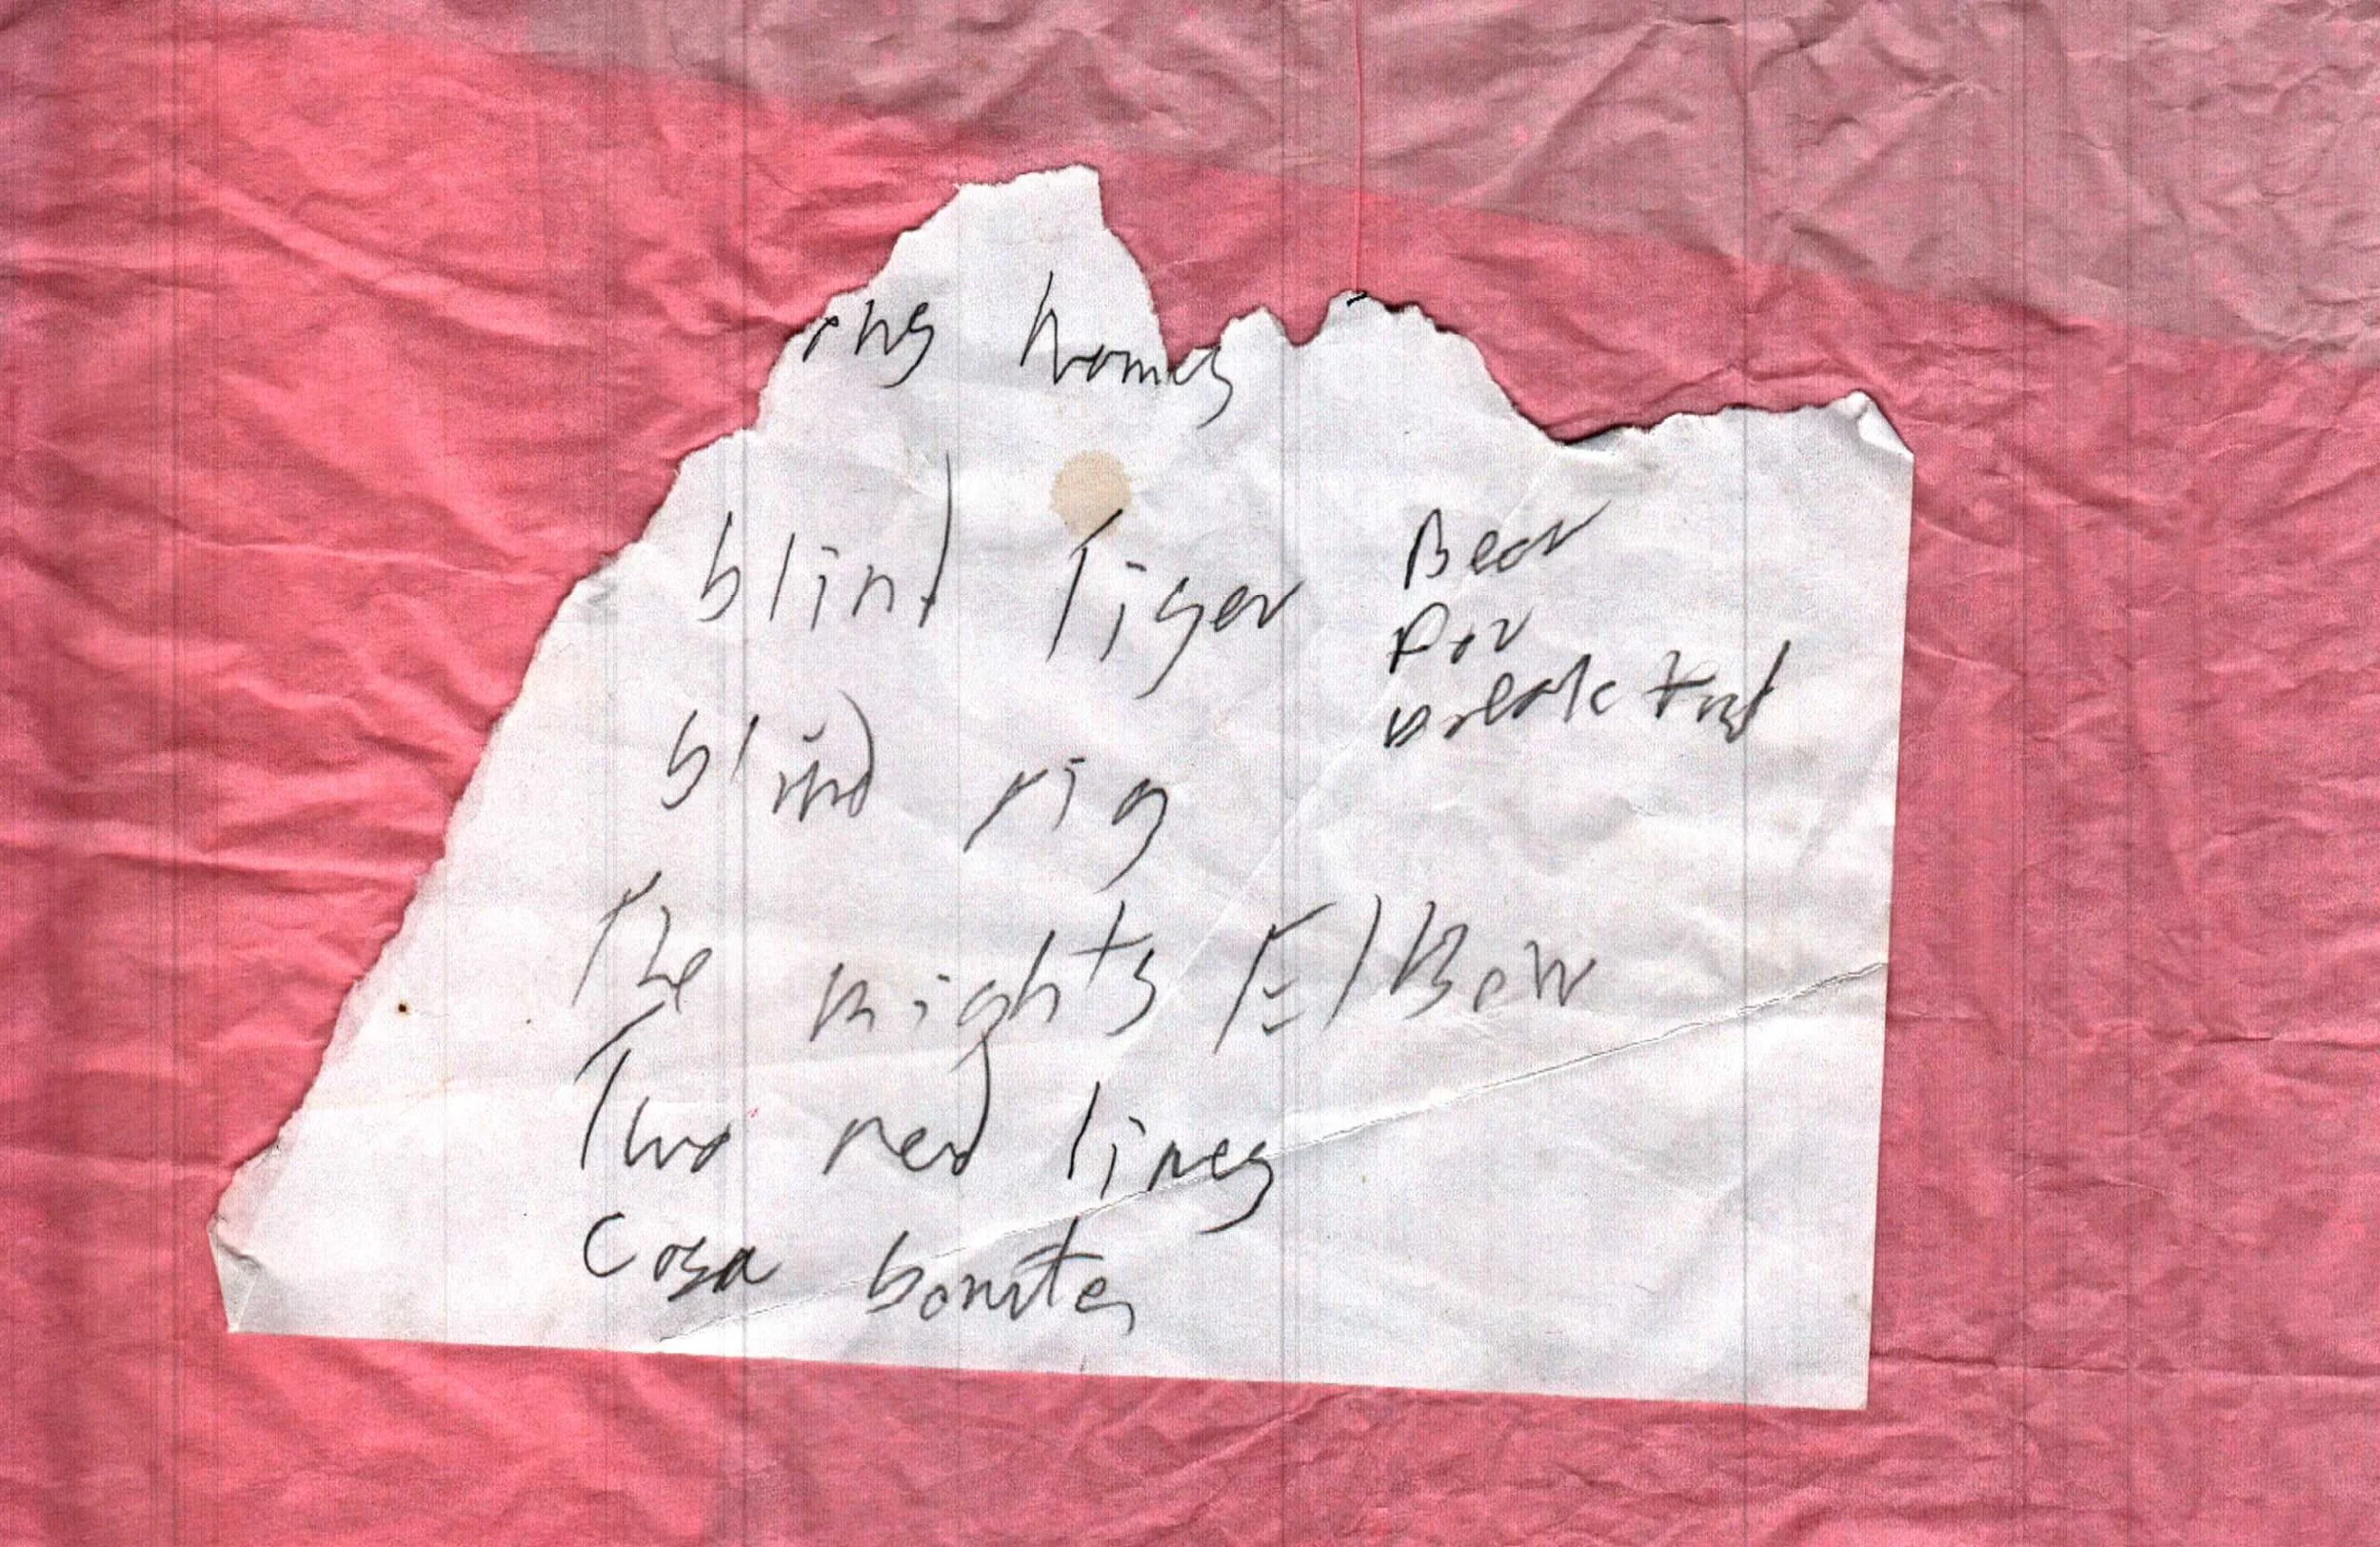 names
blind Tiger
Bear
For
breakfast
blind pig
The nights ElBow
Two red lines
Cosa bonita